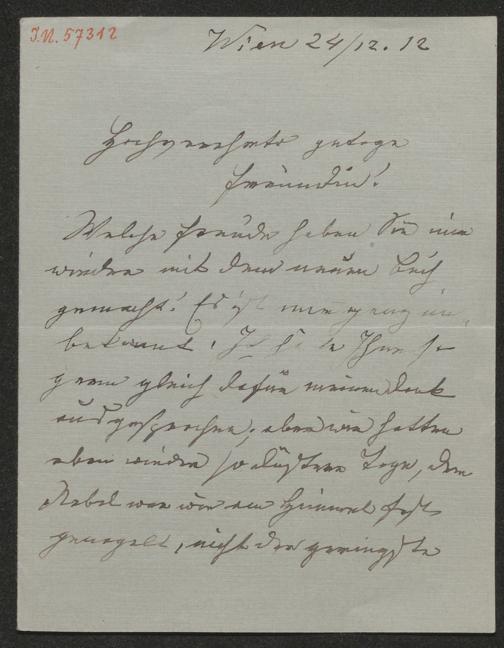 I.N. 57312
Wien 24/12.12
Hochverehrte gütige
Freundin!
Welche Freude haben Sie mir
wieder mit dem neuen Buch
gemacht! Es ist mir ganz un
bekannt. Ich hätte Ihnen so
gern gleich dafür meinen Dank
ausgesprochen, aber wir hatten
eben wieder so düstere Tage, der
Nebel war wie am Himmel fest
genagelt, nicht der geringste